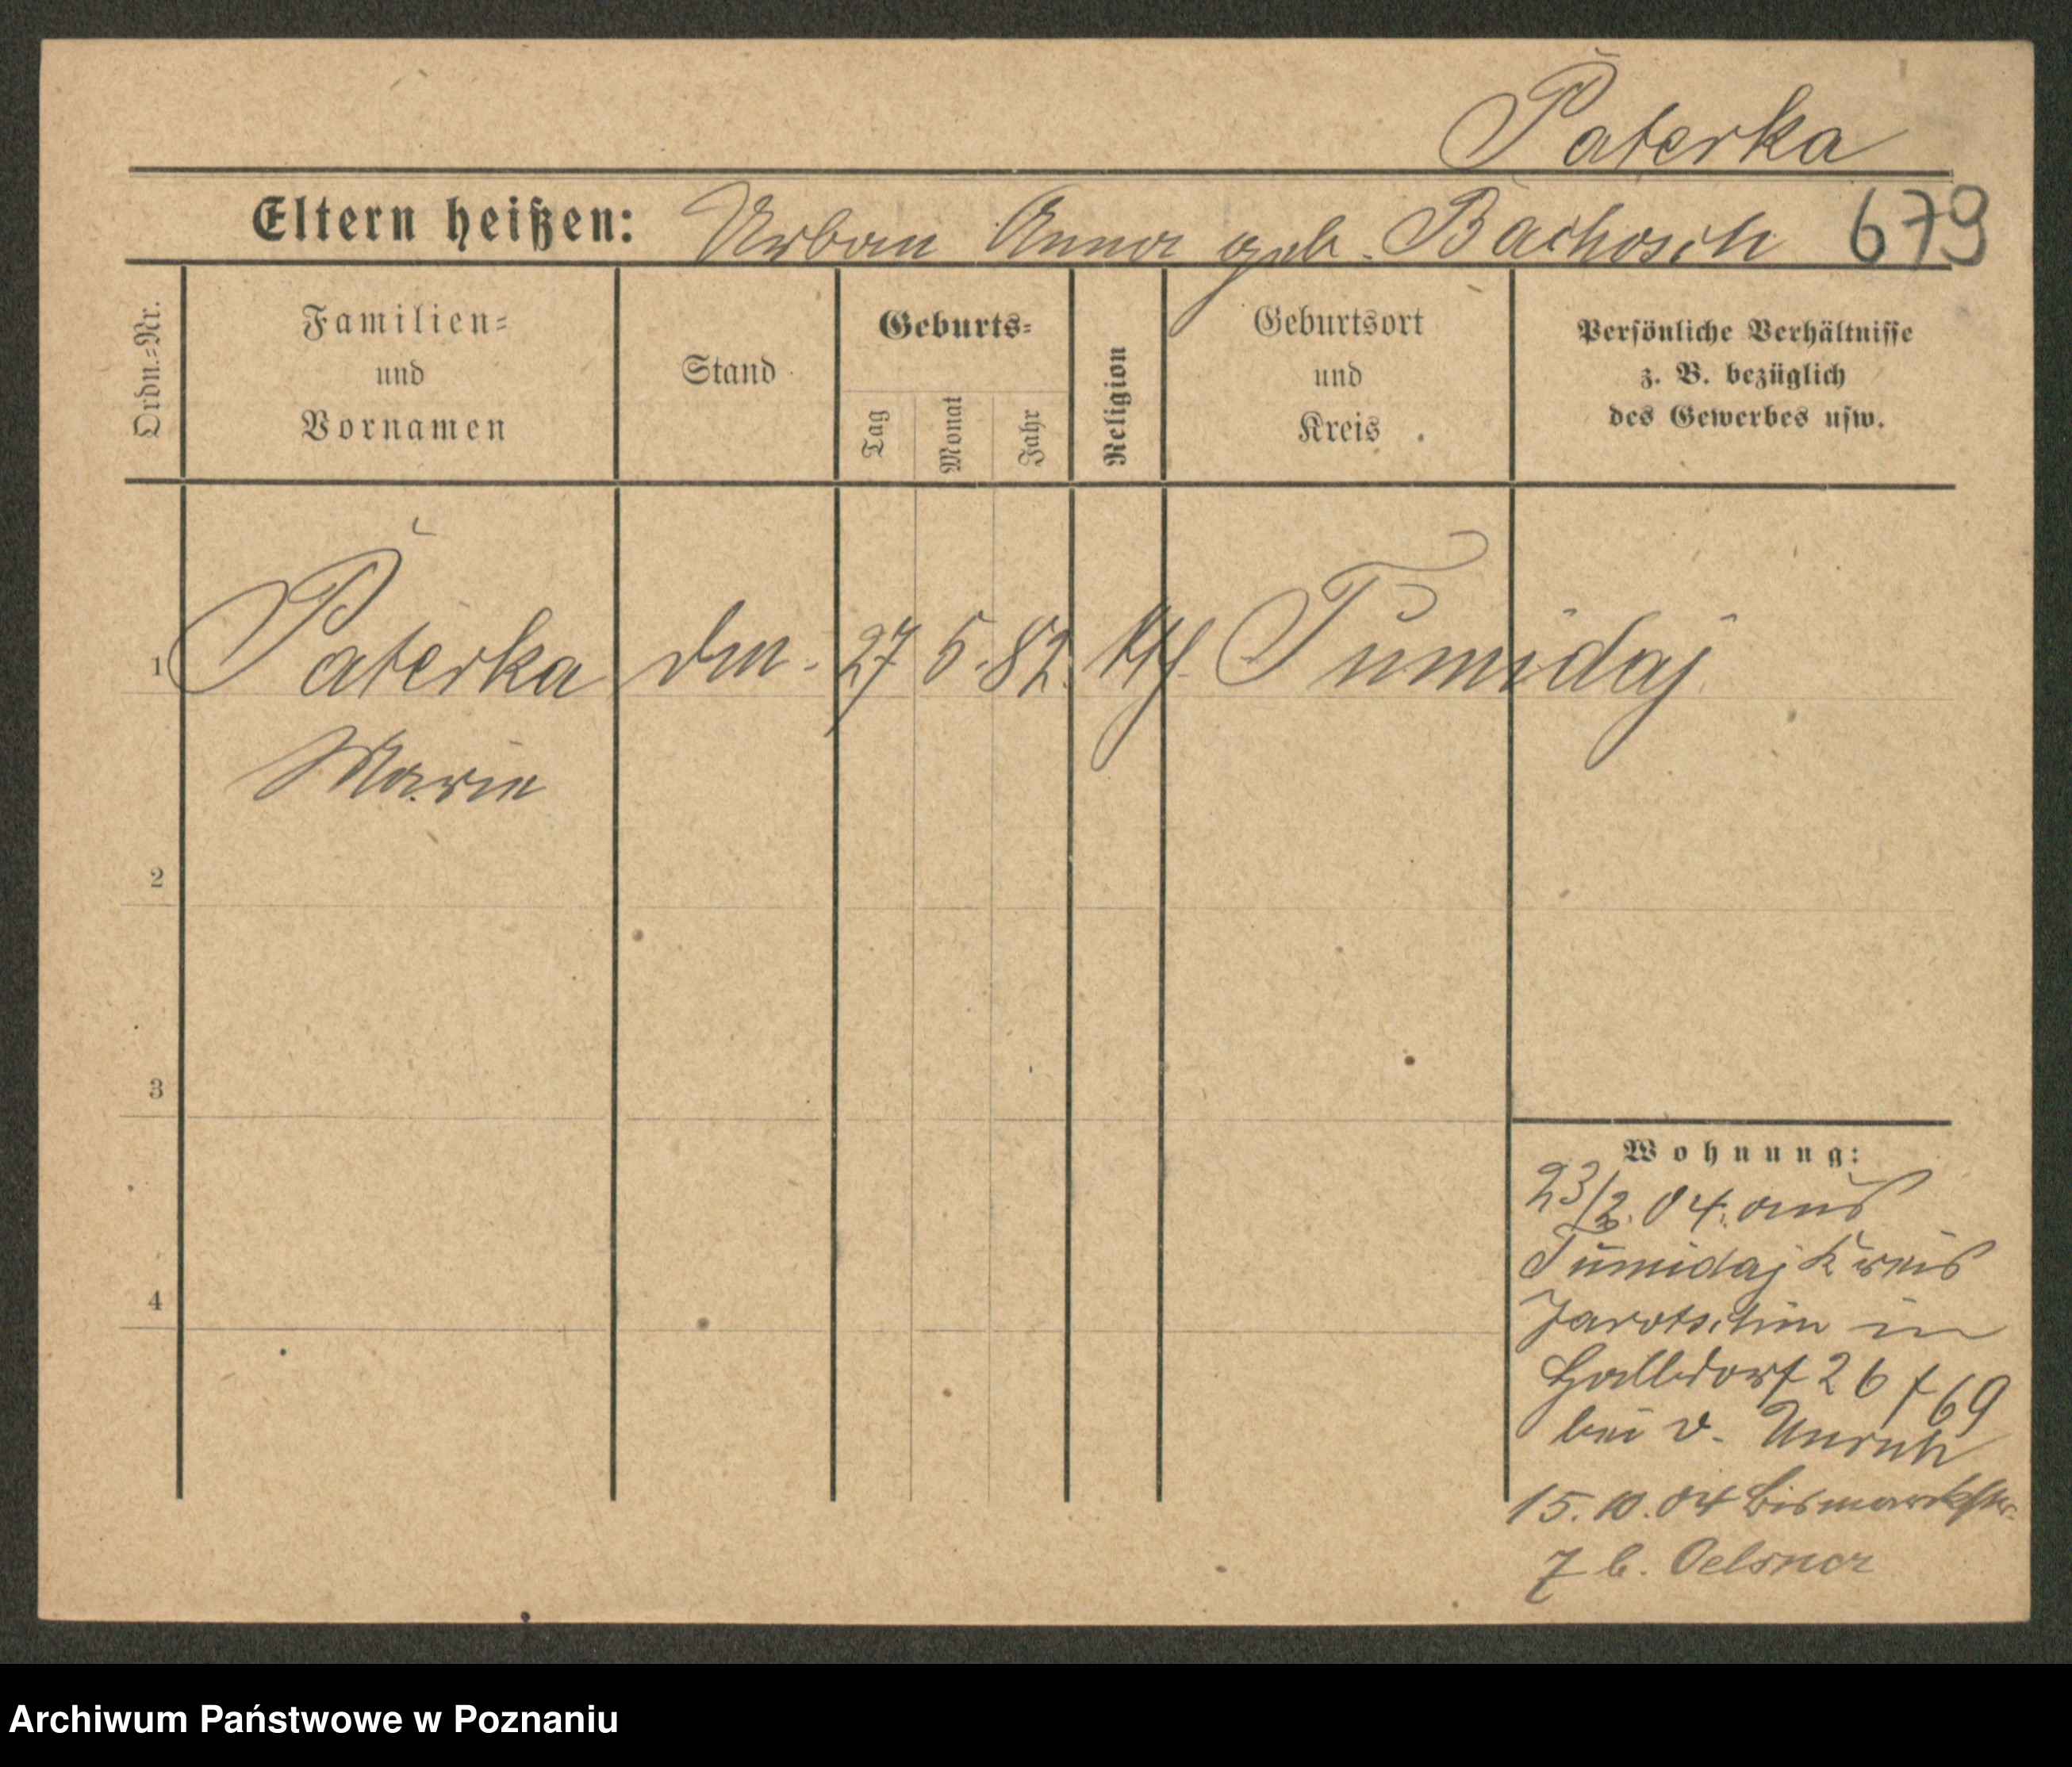 Paterka
Eltern heißen: Urban Anna geb. Bachosch 679
Ordn.=Nr.
Familien=
und
Vornamen
Stand
Geburts=
Tag
Monat
Jahr
Religion
Geburtsort
und
Kreis
Persönliche Verhältnisse
z. B. bezüglich
des Gewerbes usw.
1 Paterka 27 5. 82. Tumidaj
Marie
2
3
4
Wohnung:
23/2. 04. aus
Tumidaj Kreis
Jarotschin in
Halldorf 26 / 69
bei v. Unruh
15. 10. 04 Bismarckstr.
7 b. Oelsner
Archiwum Państwowe w Poznaniu